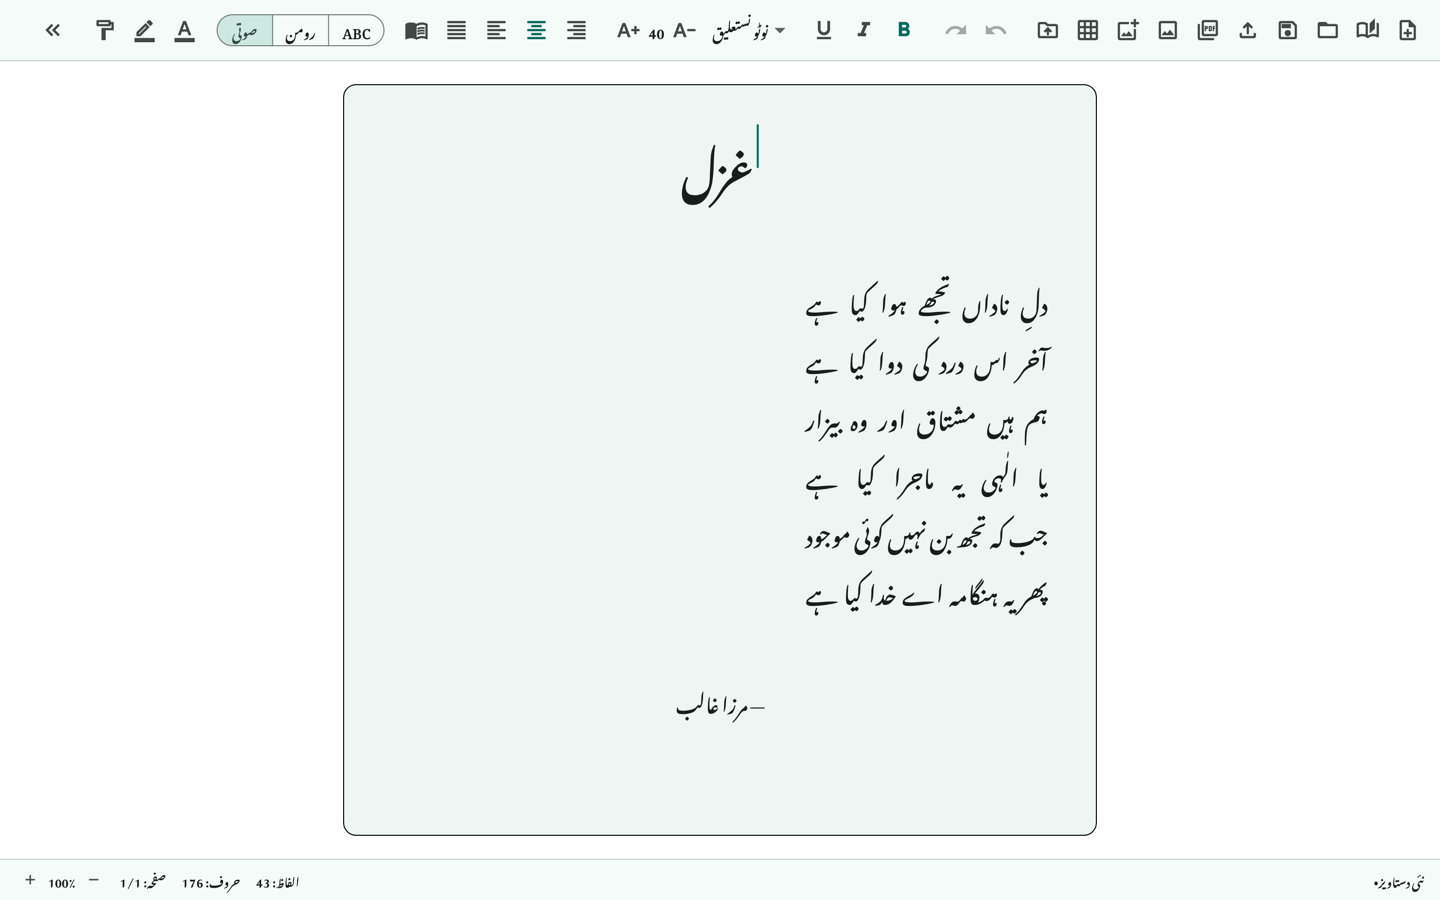 صوتی رومن ABC A+ 40 A− نوٹو نستعلیق U I B PDF
غزل
دلِ ناداں تجھے ہوا کیا ہے
آخر اس درد کی دوا کیا ہے
ہم ہیں مشتاق اور وہ بیزار
یا الٰہی یہ ماجرا کیا ہے
جب کہ تجھ بن نہیں کوئی موجود
پھر یہ ہنگامہ اے خدا کیا ہے
—مرزا غالب
نئی دستاویز•
الفاظ: 43 حروف: 176 صفحہ: 1/1 − 100% +